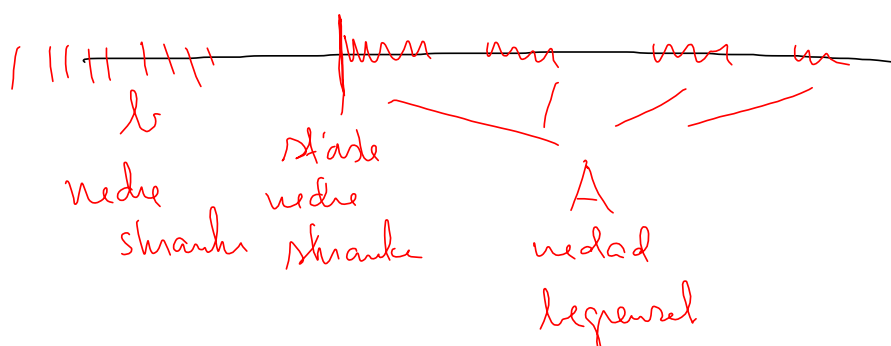 b
nedre
skranke
største
nedre
skranke
A
nedad
begrænset